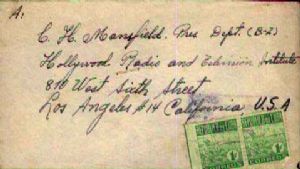 A:
C. H. Mansfield. Pres Dept. (B-2)
Hollywood Radio and Television Institute
810 West Sixth Street
Los Angeles #14 California, U.S.A
CORREOS